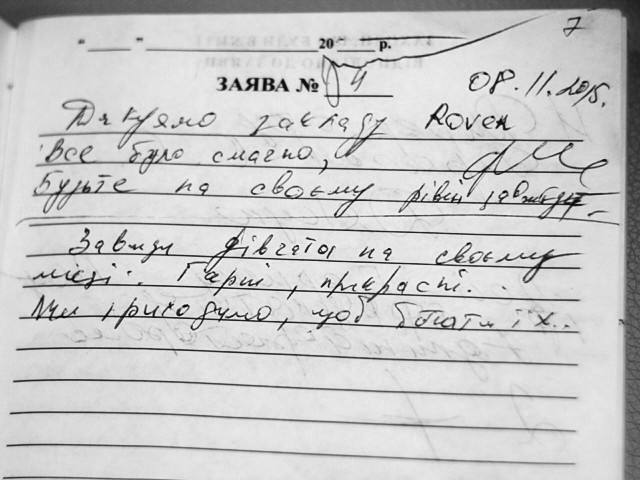 7
"____" ____________ 20____ р.
ЗАЯВА № 4
08.11.2015.
Дякуємо закладу Roven
Все було смачно,
Будьте на своєму рівні завжди
Завжди дівчата на своєму
місці. Гарні, прекрасні.
Ми приходимо, щоб бачити їх..